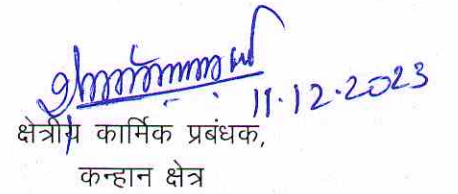 11.12.2023
क्षेत्रीय कार्मिक प्रबंधक,
कन्हान क्षेत्र